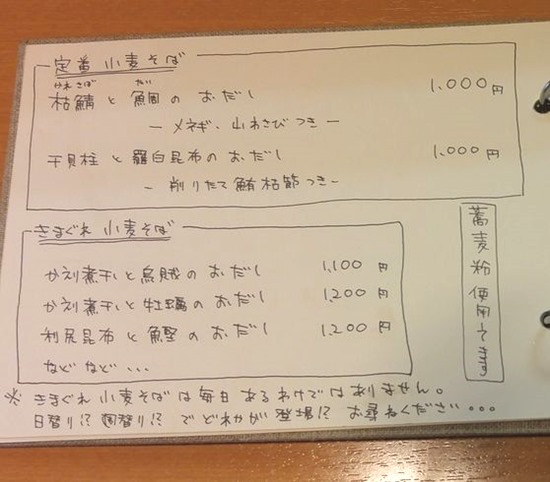 定番 小麦そば
かれさば だい
枯鯖と鯛のおだし 1,000円
ーメネギ、山わさびつきー
干貝柱と羅臼昆布のおだし 1,000円
ー削りたて鮪枯節つきー
きまぐれ 小麦そば
かえり煮干しと烏賊のおだし 1,100円
かえり煮干しと牡蠣のおだし 1,200円
利尻昆布と鰹のおだし 1,200円
などなど...
蕎麦粉使用してます
※きまぐれ小麦そばは毎日あるわけではありません。
日替り!? 麺替り!? でどれかが登場!? お尋ねください...